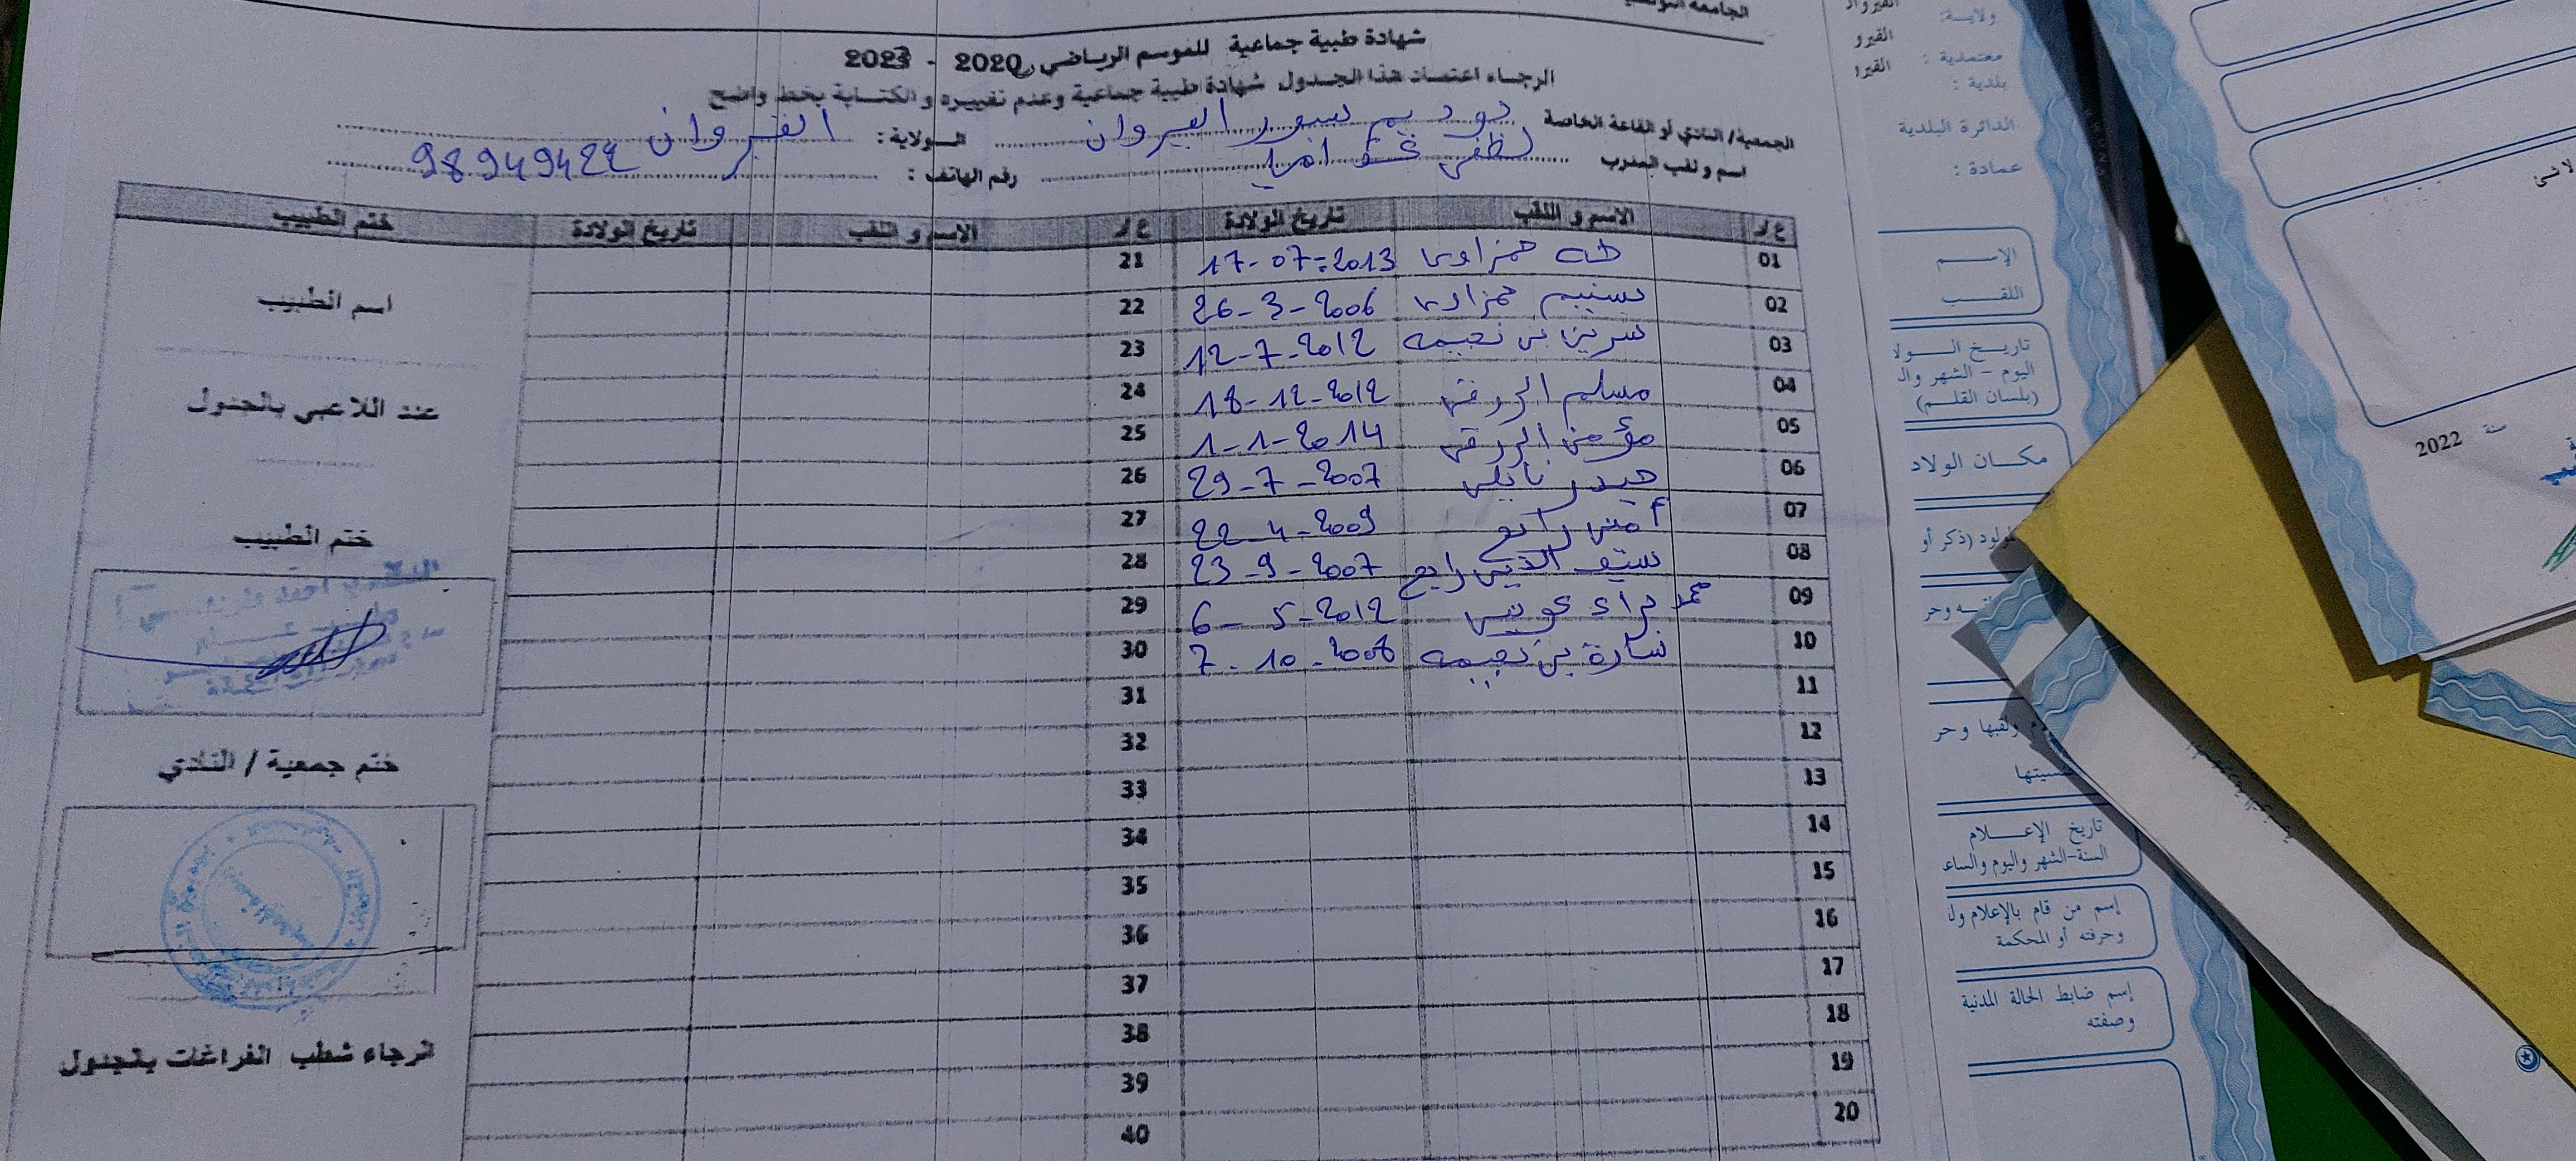 شهادة طبية جماعية للموسم الرياضي 2020 - 2023
الرجاء اعتماد هذا الجدول شهادة طبية جماعية وعدم تغييره والكتابة بخط واضح
الجمعية/ النادي أو القاعة الخاصة سور القيروان الولاية: القيروان
اسم ولقب المدرب لطفي رقم الهاتف: 98949422
ع/ر الاسم و اللقب تاريخ الولادة ع/ر الاسم و اللقب تاريخ الولادة ختم الطبيب
01 طه حمزاوي 17-07-2013 21
02 تسنيم حمزاوي 26-3-2006 22
03 سرين بن نعيمه 12-7-2012 23
04 مسلم الزرقي 18-12-2012 24
05 مؤمن الزرقي 1-1-2014 25
06 حيدر نايلي 29-7-2007 26
07 أمين رابح 22-4-2009 27
08 سيف الدين رابح 23-9-2007 28
09 محمد براء عويني 6-5-2012 29
10 سارة بن نعيمه 7-10-2008 30
11 31
12 32
13 33
14 34
15 35
16 36
17 37
18 38
19 39
20 40
اسم الطبيب
عدد اللاعبي بالجدول
ختم الطبيب
ختم جمعية / النادي
الرجاء شطب الفراغات بالجدول
ولاية:
معتمدية :
بلدية :
الدائرة البلدية
عمادة :
الإسم
اللقب
اليوم - الشهر وال
(بلسان القلم)
ولقبها وحر
تاريخ الإعلام
السنة-الشهر واليوم والساع
إسم من قام بالإعلام ول
وحرفته أو المحكمة
إسم ضابط الحالة المدنية
وصفته
سنة 2022